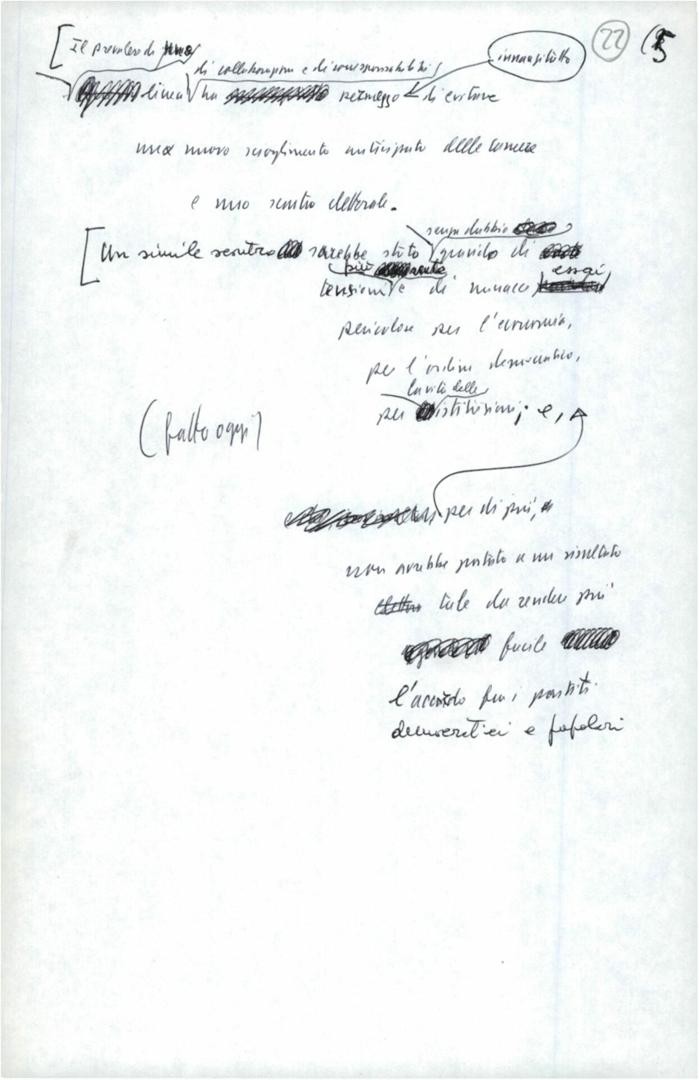 22 5
[Il prevalere di una
di collaborazione e di corresponsabilità innanzitutto
linea ha permesso di evitare
un nuovo scioglimento anticipato delle camere
e uno scontro elettorale.
senza dubbio
[Un simile scontro sarebbe stato gravido di
più assai
tensioni e di minacce
pericolose per l'economia,
per l'ordine democratico,
la vita delle
per istituzioni; e,
(fatto oggi)
per di più,
non avrebbe portato a un risultato
tale da rendere più
facile
l'accordo fra i partiti
democratici e popolari